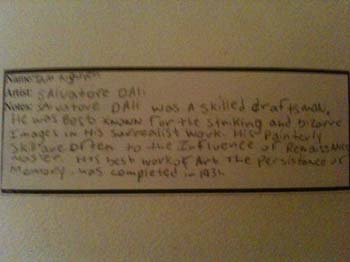 Name: Nguyen
Artist: SAlvatore DAli
Notes: SAlvatore DAli was A skilled draftsman,
He was Best known for the striking and bizarre
Images in His surrealist work. His Painterly
skill are often to the Influence of Renaissance
master. His best work of Art The Persistance of
Memory was completed in 1931.